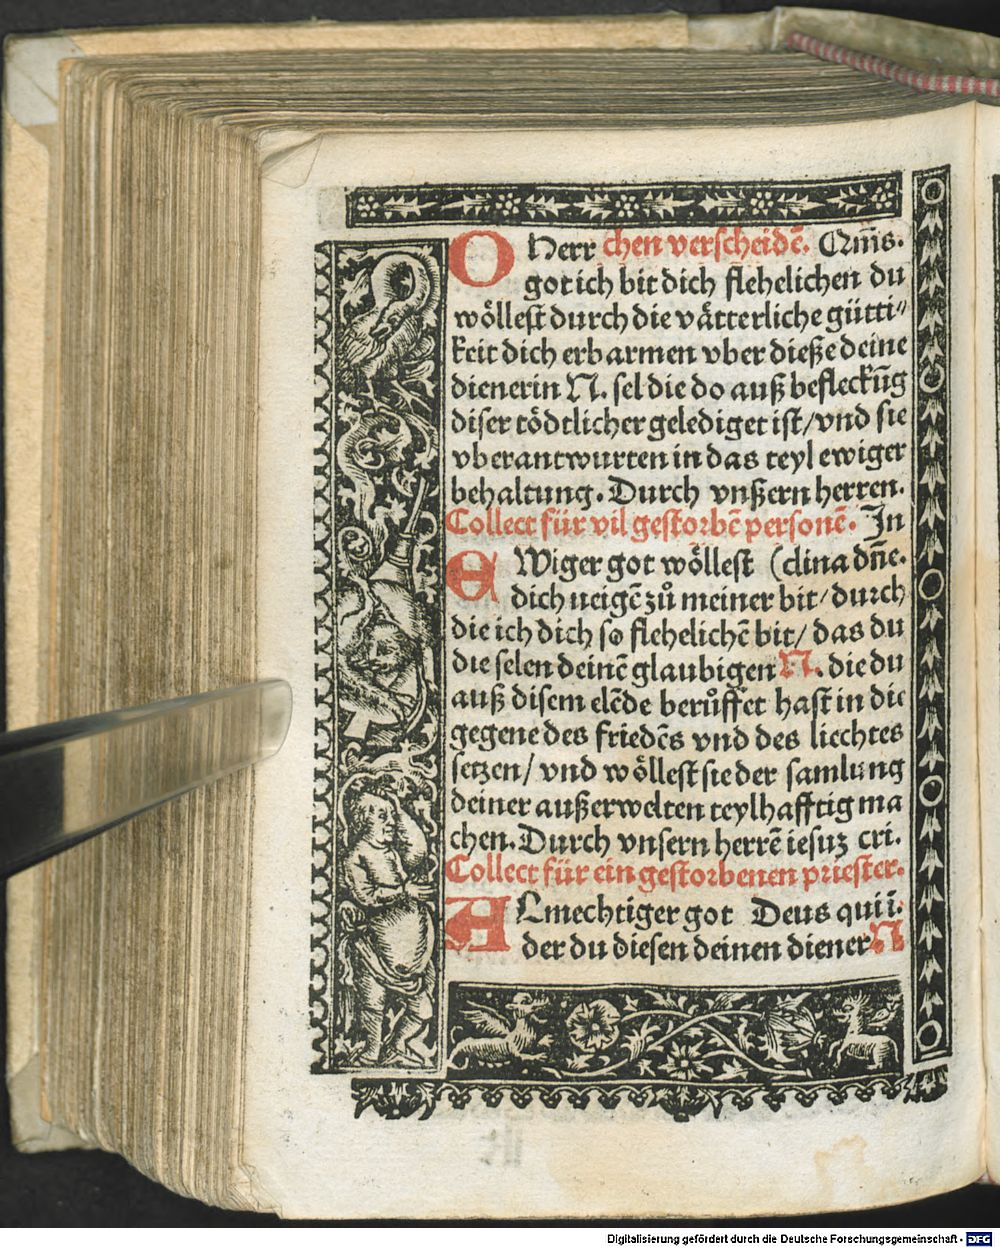 O Herr chen verscheidē. Q̄um̄s.
got ich bit dich flehelichen du
woͤllest durch die vaͤtterliche guͤtti⸗
keit dich erbarmen vber dieße deine
dienerin N. sel die do auß befleckūg
diser toͤdtlicher gelediget ist/vnd sie
vberantwurten in das teyl ewiger
behaltung. Durch vnßern herren.
Collect fuͤr vil gestorbē personē. In
EWiger got woͤllest (clina dn̄e.
dich neigē zů meiner bit/durch
die ich dich so flehelichē bit/ das du
die selen deinē glaubigen N. die du
auß disem elēde berůffet hast in die
gegene des friedēs vnd des liechtes
setzen/ vnd woͤllest sie der samlung
deiner außerwelten teylhafftig ma
chen. Durch vnsern herrē iesuz cri.
Collect fuͤr ein gestorbenen priester.
ALmechtiger got Deus qui ī.
der du diesen deinen diener N
Digitalisierung gefördert durch die Deutsche Forschungsgemeinschaft - DFG